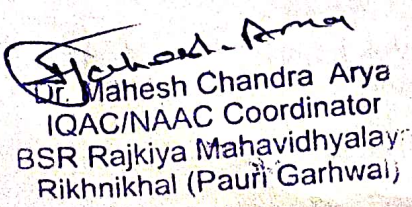 Dr. Mahesh Chandra Arya
IQAC/NAAC Coordinator
BSR Rajkiya Mahavidhyalay
Rikhnikhal (Pauri Garhwal)